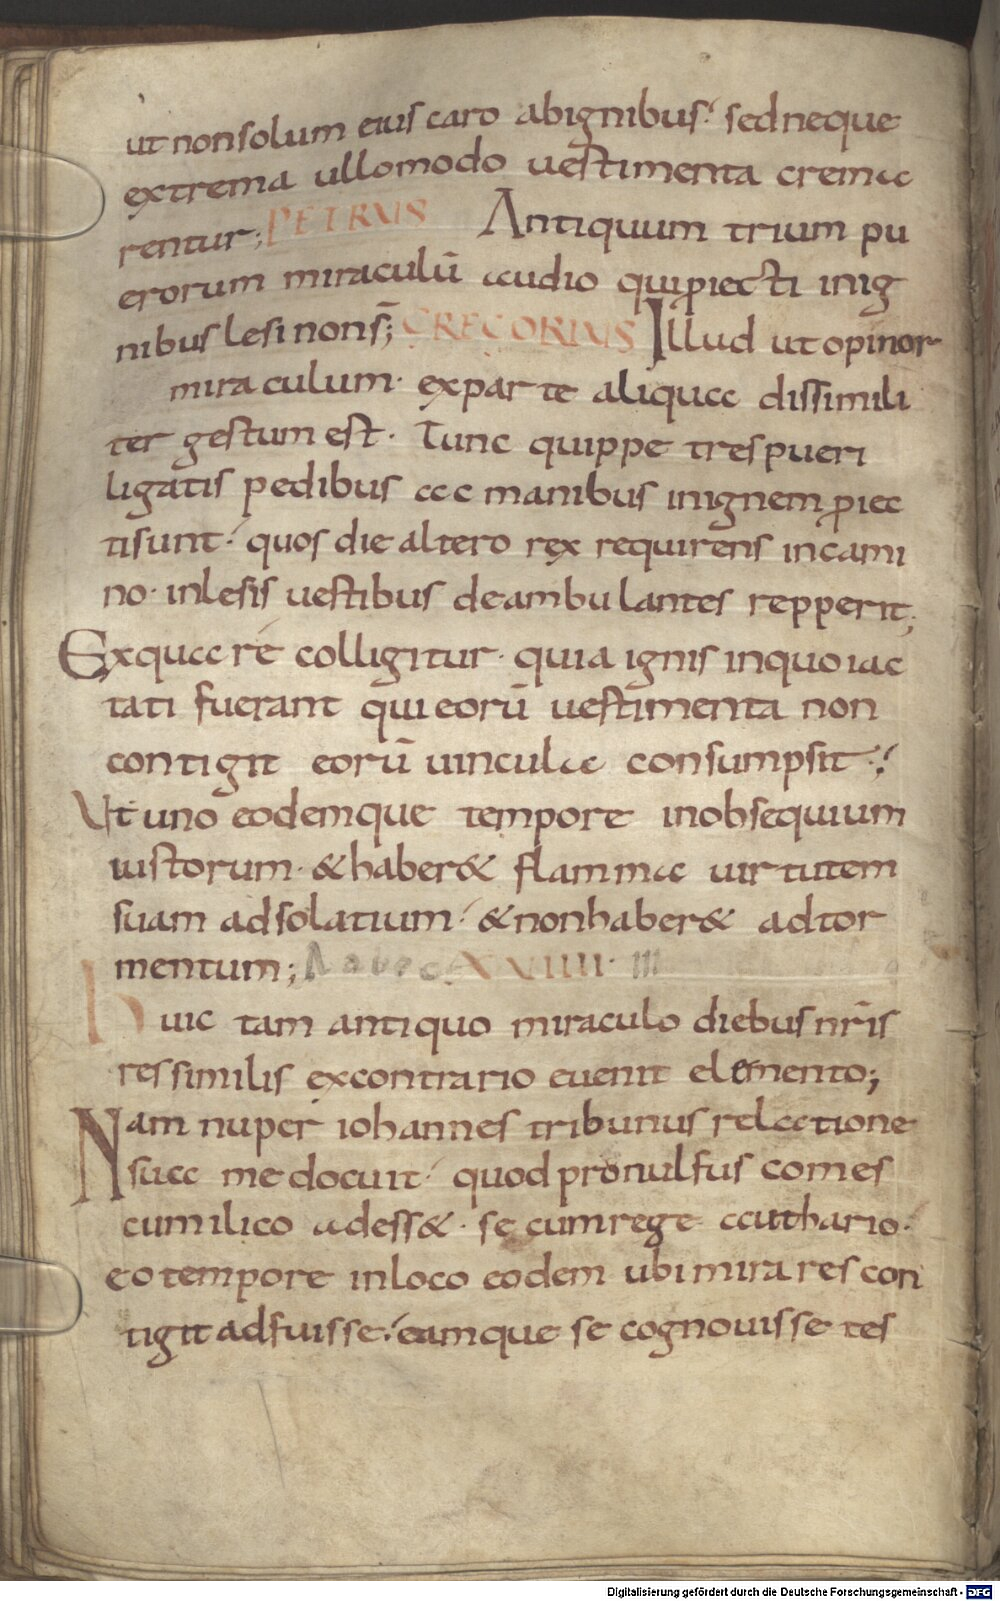 ut non solum eius caro ab ignibus sed neque
extrema ullomodo uestimenta crema
rentur; PETRUS Antiquum trium pu
erorum miraculū audio qui ꝓiecti in ig
nibus lesi non s̄; GREGORIUS Illud ut opinor
miraculum · ex parte aliqua dissimili
ter gestum est · Tunc quippe tres pueri
ligatis pedibus ac manibus in ignem ꝓiec
ti sunt · quos die altero rex requirens in cami
no · inlesis uestibus deambulantes repperit;
Ex qua re colligitur · quia ignis in quo iac
tati fuerant qui eorū uestimenta non
contigit eorū uincula consumpsit ·
Ut uno eodemque tempore in obsequium
iustorum · & haber& flamma uirtutem
suam ad solatium · & non haber& ad tor
mentum; XXIIII ·
Huic tam antiquo miraculo diebus nr̄is
res similis ex contrario euenit elemento;
Nam nuper iohannes tribunus relatione
sua me docuit · quod pronulfus comes
cum ilico adess& · se cum rege authario ·
eo tempore in loco eodem ubi mira res con
tigit adfuisse · eamque se cognouisse tes
Digitalisierung gefördert durch die Deutsche Forschungsgemeinschaft - DFG